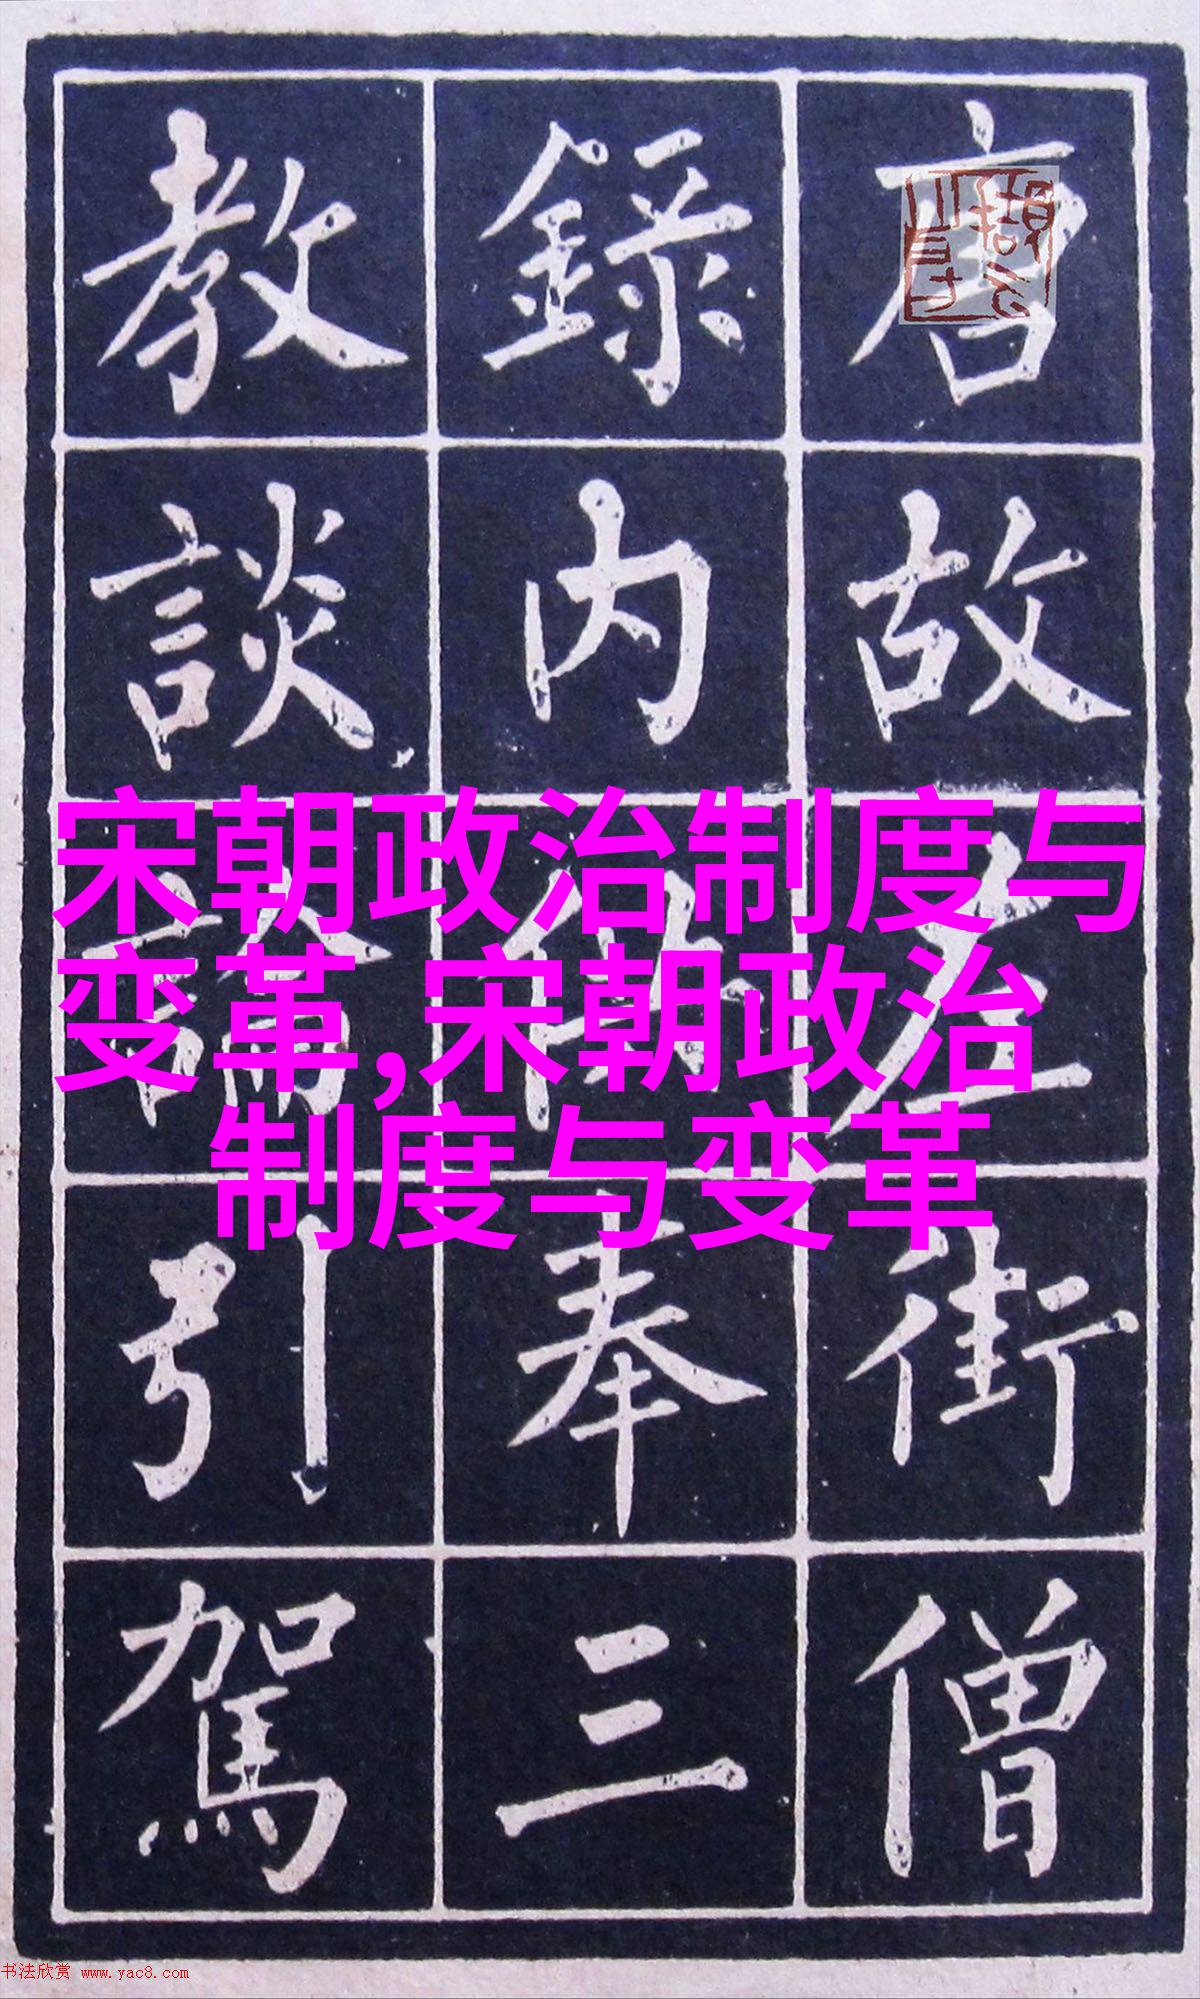 唐故左街僧
錄内供奉三
教談論引駕
宋朝政治制度与
变革,宋朝政治
制度与变革
书法欣赏 www.yac8.com